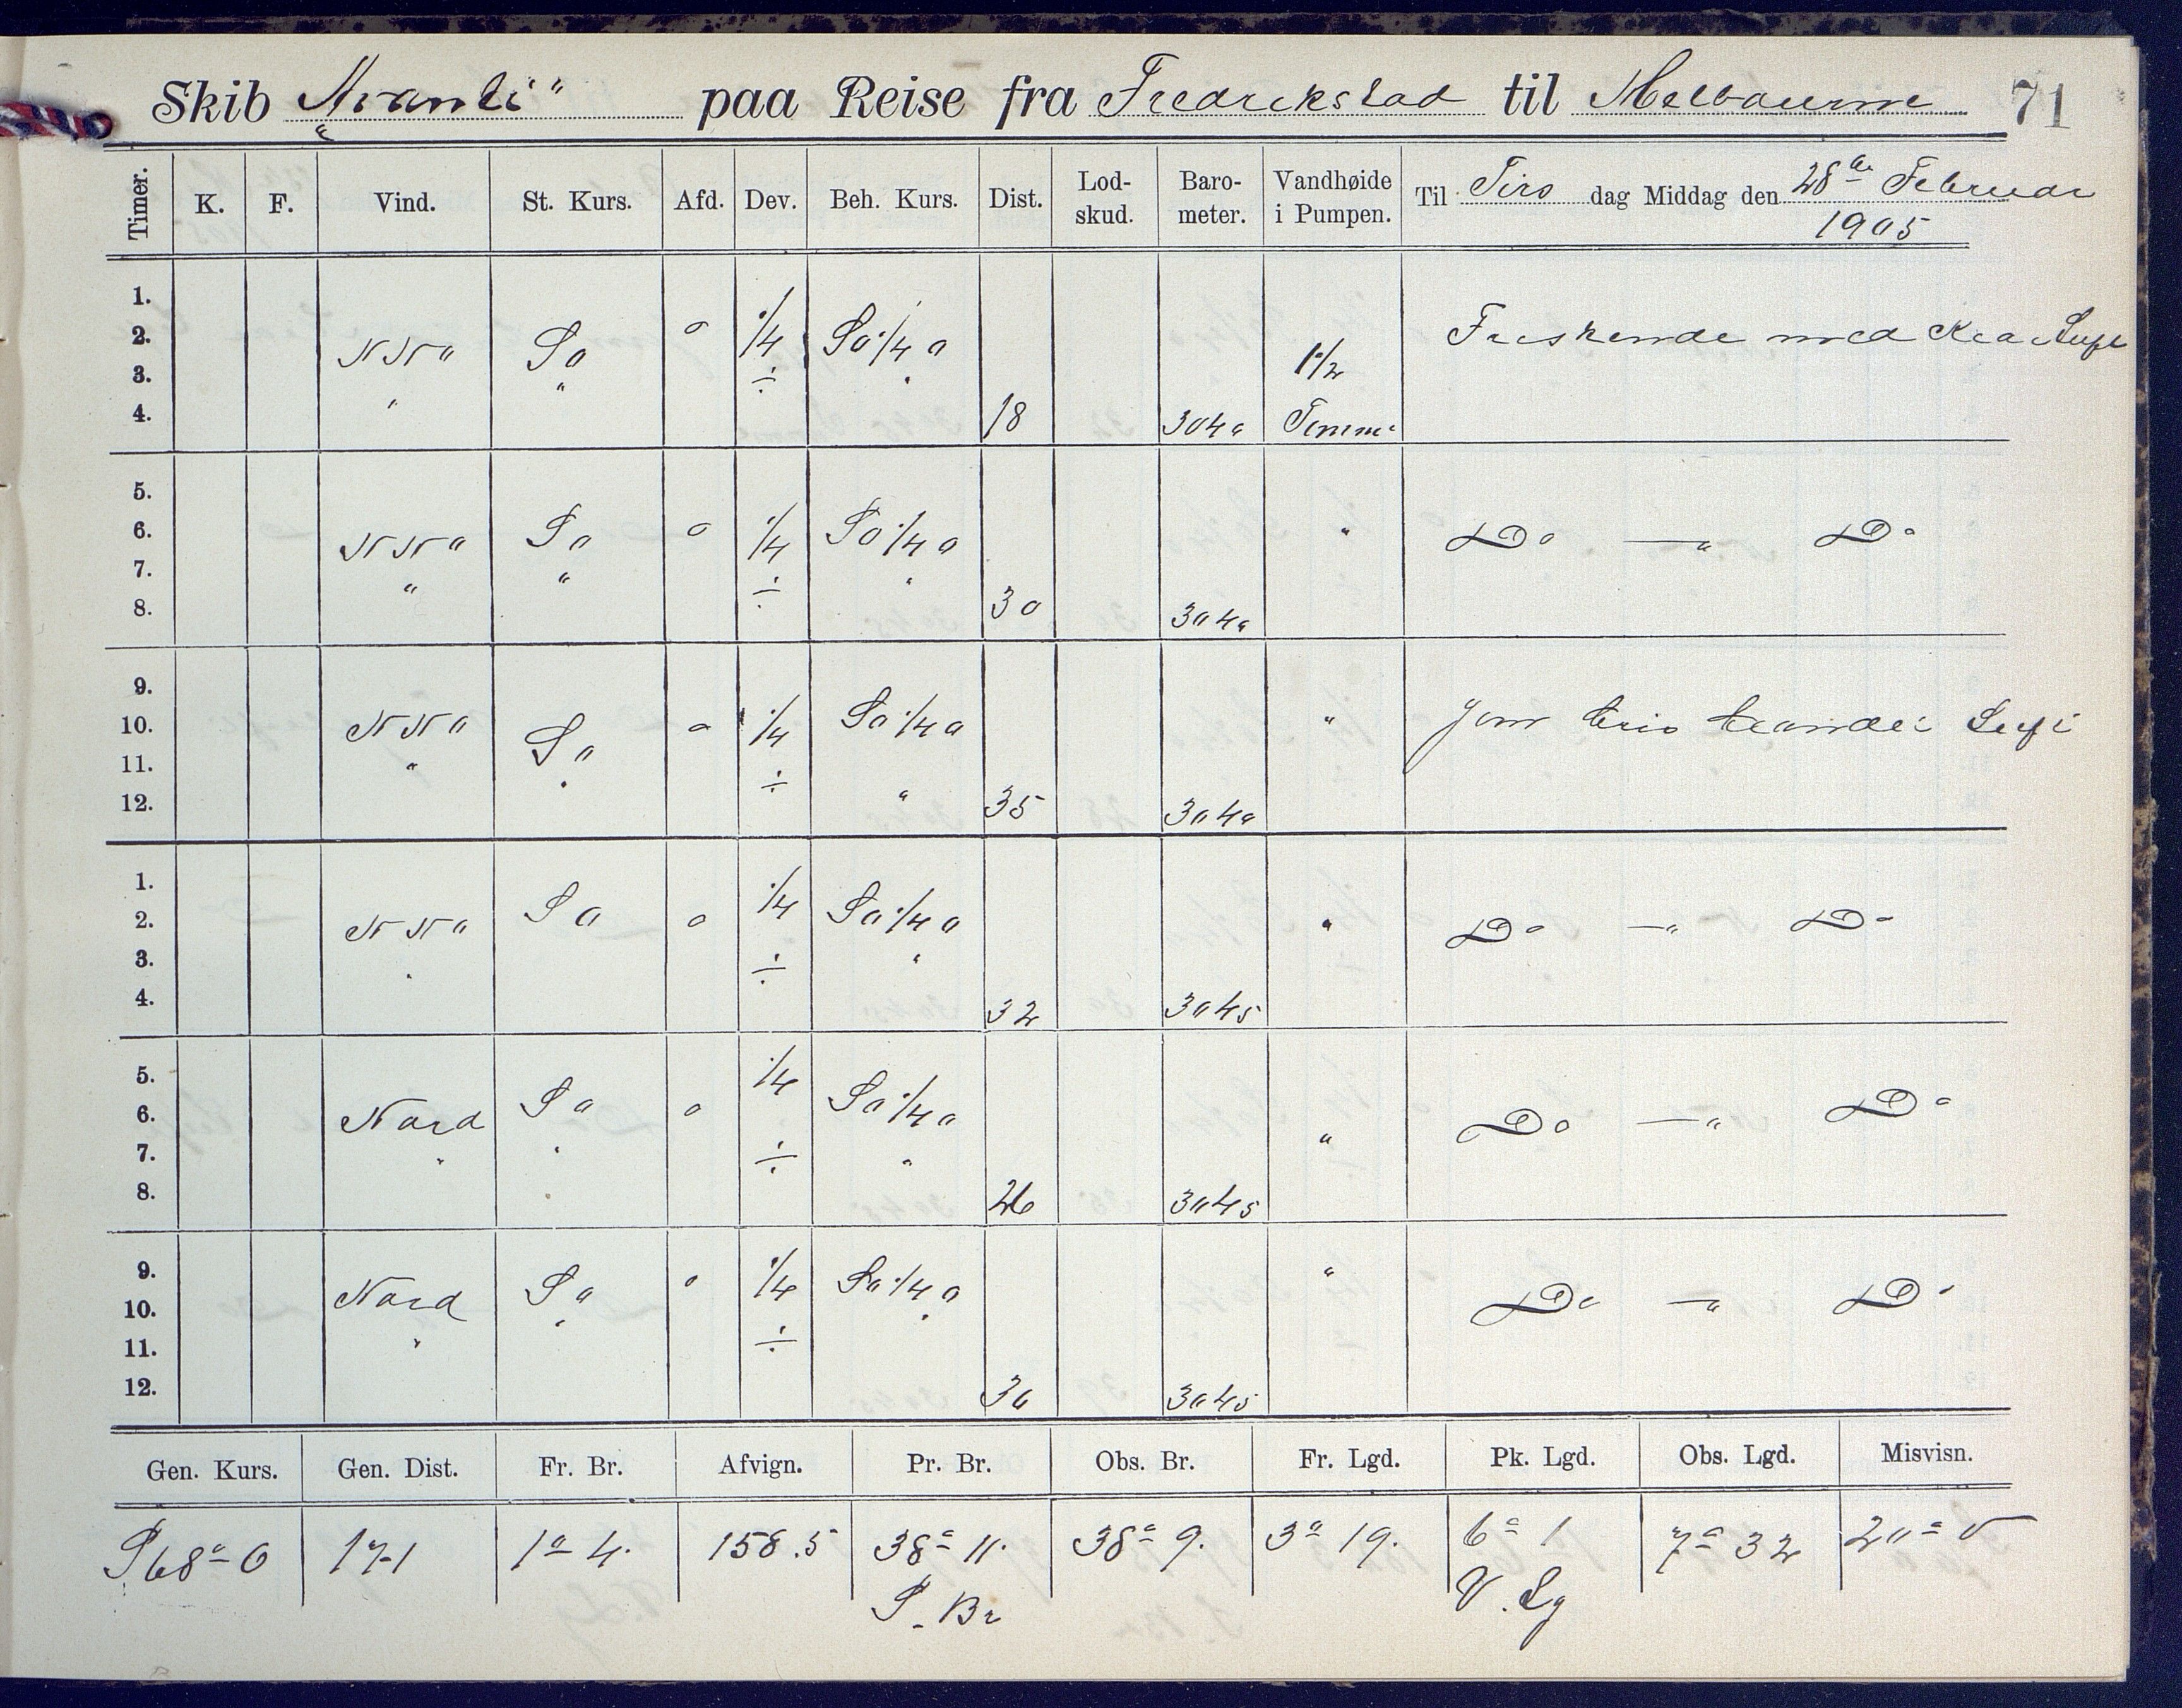 Skib "Avanti" paa Reise fra Fredrikstad til Melbourne 71
Timer. K. F. Vind. St. Kurs. Afd. Dev. Beh. Kurs. Dist. Lod-skud. Baro-meter. Vandhøide i Pumpen. Til Tirs dag Middag den 28de Februar
1905
1.
2. NNO SO 0 1/4 SO 1/4 O Friskende med Klar Luft
3. " " ÷ " 1 1/2
4. 18 3040 Tomme
5.
6. NNO SO 0 1/4 SO 1/4 O " Do —"— Do
7. " " ÷ "
8. 30 3040
9.
10. NNO SO 0 1/4 SO 1/4 O " Jevn Bris Luft
11. " " ÷ "
12. 35 3040
1.
2. NNO SO 0 1/4 SO 1/4 O " Do —"— Do
3. " ÷ "
4. 32 3045
5.
6. Nord SO 0 1/4 SO 1/4 O " Do —"— Do
7. " " ÷ "
8. 26 3045
9.
10. Nord SO 0 1/4 SO 1/4 O " Do —"— Do
11. " " ÷ "
12. 30 3045
Gen. Kurs. Gen. Dist. Fr. Br. Afvign. Pr. Br. Obs. Br. Fr. Lgd. Pk. Lgd. Obs. Lgd. Misvisn.
S 68° O 171 1° 4. 158.5 38° 11. 38° 9. 3° 19. 6° 1 7° 32 20° V
S. Br V. Lg